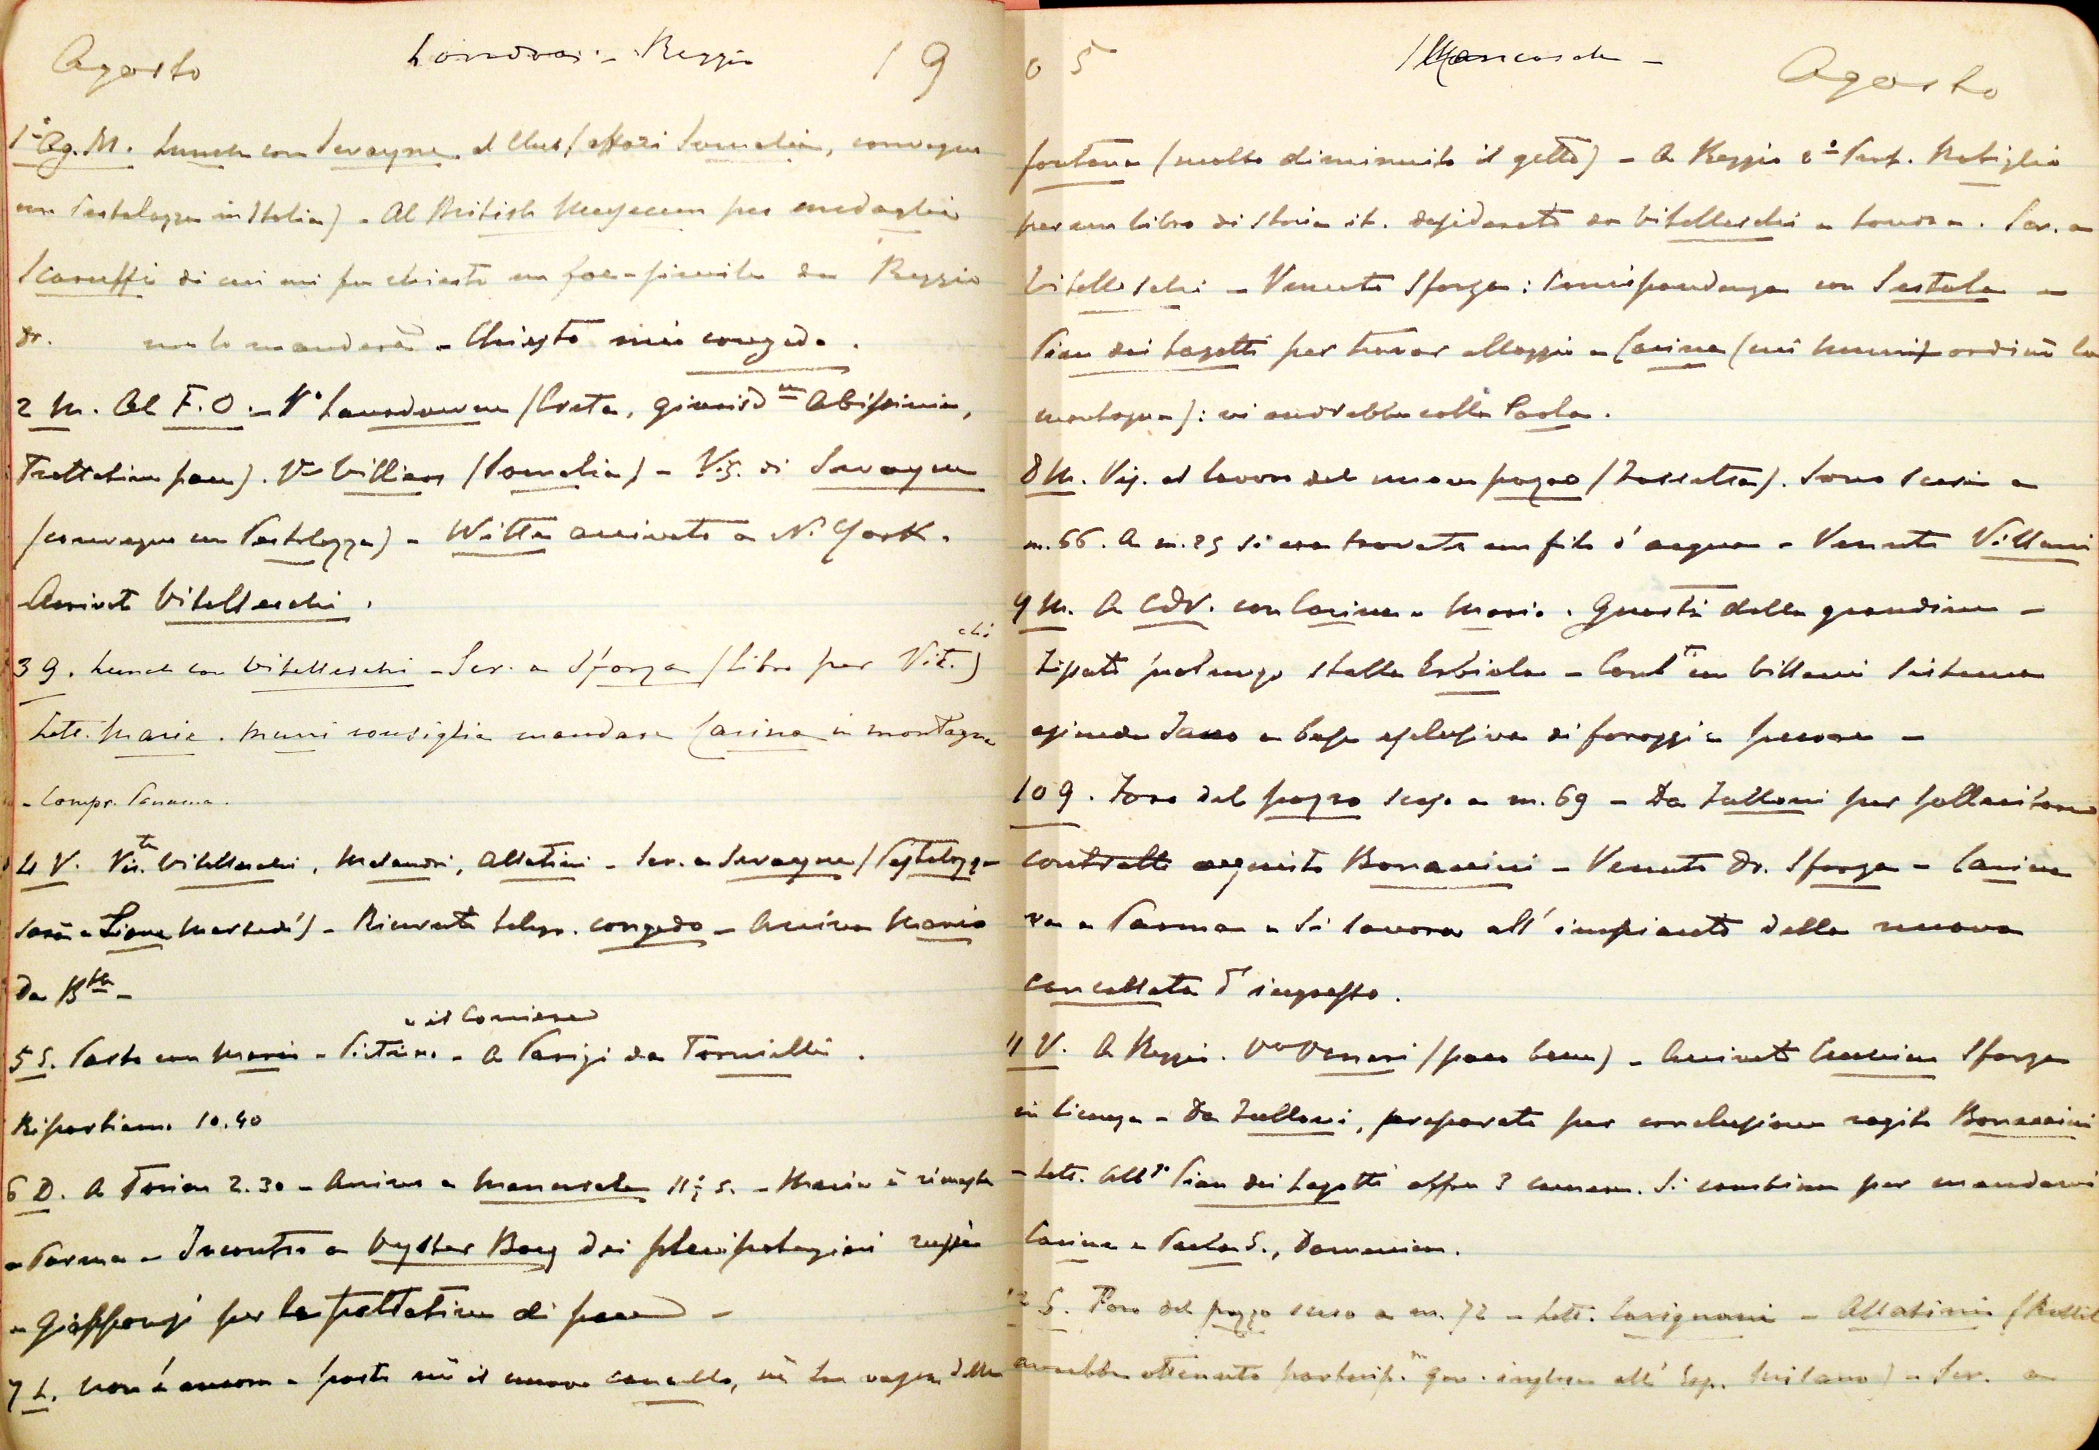 Agosto Londra - Reggio 19
1° Ag. M. Lunch con Swayne al Club (affari Somalia, convegno
con Pestalozza in Italia) - Al British Museum per medaglia
Scaruffi di cui mi fu chiesto un fac-simile da Reggio
Dr. me lo manderà - Chiesto mio congedo.
2 M. Al F.O. - V° Lansdowne (Creta, giurisd.ne Abissinia,
Trattative pace). V° Villiers (Somalia) - Vis. di Swayne
(convegno con Pestalozza) - Witte arrivato a N. York.
Arrivato Vitelleschi.
3 G. Lunch con Vitelleschi - Scr. a Sforza (libro per Vit.chi)
Lett. Maria. Munì consiglia mandare Carina in montagna
- Compr. Panama.
4 V. Vis.te Vitelleschi, Melandri, Allatini - Scr. a Swayne (Pestalozza
sarà a Lione Martedì) - Ricevuto telegr. congedo - Arriva Mario
Da B
5 S. Parto con Mario - A Parigi da Tornielli e il Corriere.
Ripartiamo 10.40
6 D. A Torino 2.30 - Arrivo a Mancasale 11½ s. - Maria è rimasta
a Parma - Incontro a Oyster Bay dei plenipotenziari russi
e giapponesi per le trattative di pace -
7 L. Non è ancora a posto nè il nuovo cancello, nè la vasca della
05 Mancasale - Agosto
fontana (molto diminuito il getto) - A Reggio
per un libro di storia it. desiderato da Vitelleschi a Londra. Scr. a
Vitelleschi - Venuto Sforza: corrispondenza con Sestola e
Pian dei Lagotti per trovar alloggio a Carina (cui Munì ordinò la
montagna): vi andrebbe colla Paola.
8 M. Vis. al lavoro del nuovo pozzo. Sono scesi a
m. 66. A m. 25 si era trovato un filo d'acqua - Venuto Villani
9 M. A CdV. con Carina e Mario. Guasti della grandine -
stalla Erbiola - Villani sistema
azienda a base esclusiva di foraggi e pecore -
10 G. Foro del pozzo sceso a m. 69 - Da per sollecitare
contratto acquisto Bonaccini - Venuto Dr. Sforza - Carina
va a Parma - Si lavora all'impianto della nuova
cancellata d'ingresso.
11 V. A Reggio. (poco bene) - Arrivato Sforza
in licenza - Da, preparato per conclusione rogito Bonaccini
- Lett. Alb° Pian dei Lagotti offre 3 camere. Si combina per mandarvi
Carina e Paola S., Domenica.
12 S. Foro del pozzo sceso a m. 72 - Lett. Carignani - Allatini
avrebbe ottenuto partecip.ne gov. inglese all'Esp. Milano) - Scr. a